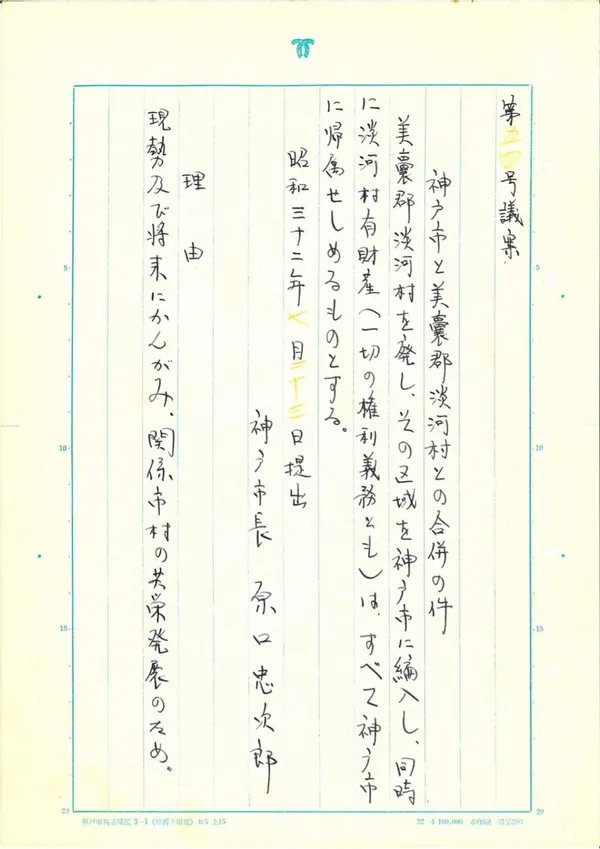 第五四号議案
神戸市と美嚢郡淡河村との合併の件
美嚢郡淡河村を廃し、その区域を神戸市に編入し、同時
に淡河村有財産(一切の権利義務とも)は、すべて神戸市
に帰属せしめるものとする。
昭和三十二年七月二十三日提出
神戸市長 原口忠次郎
理由
現勢及び将来にかんがみ、関係市村の共栄発展のため。
5
10
15
20
5
10
15
20